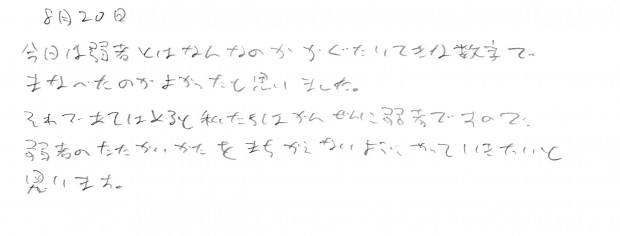 8月20日
今日は弱者とはなんなのかがぐたいてきな数字で
まなべたのがよかったと思いました。
それであてはめると私たちはかんぜんに弱者ですので、
弱者のたたかいかたをまちがえないようにやっていきたいと
思います。